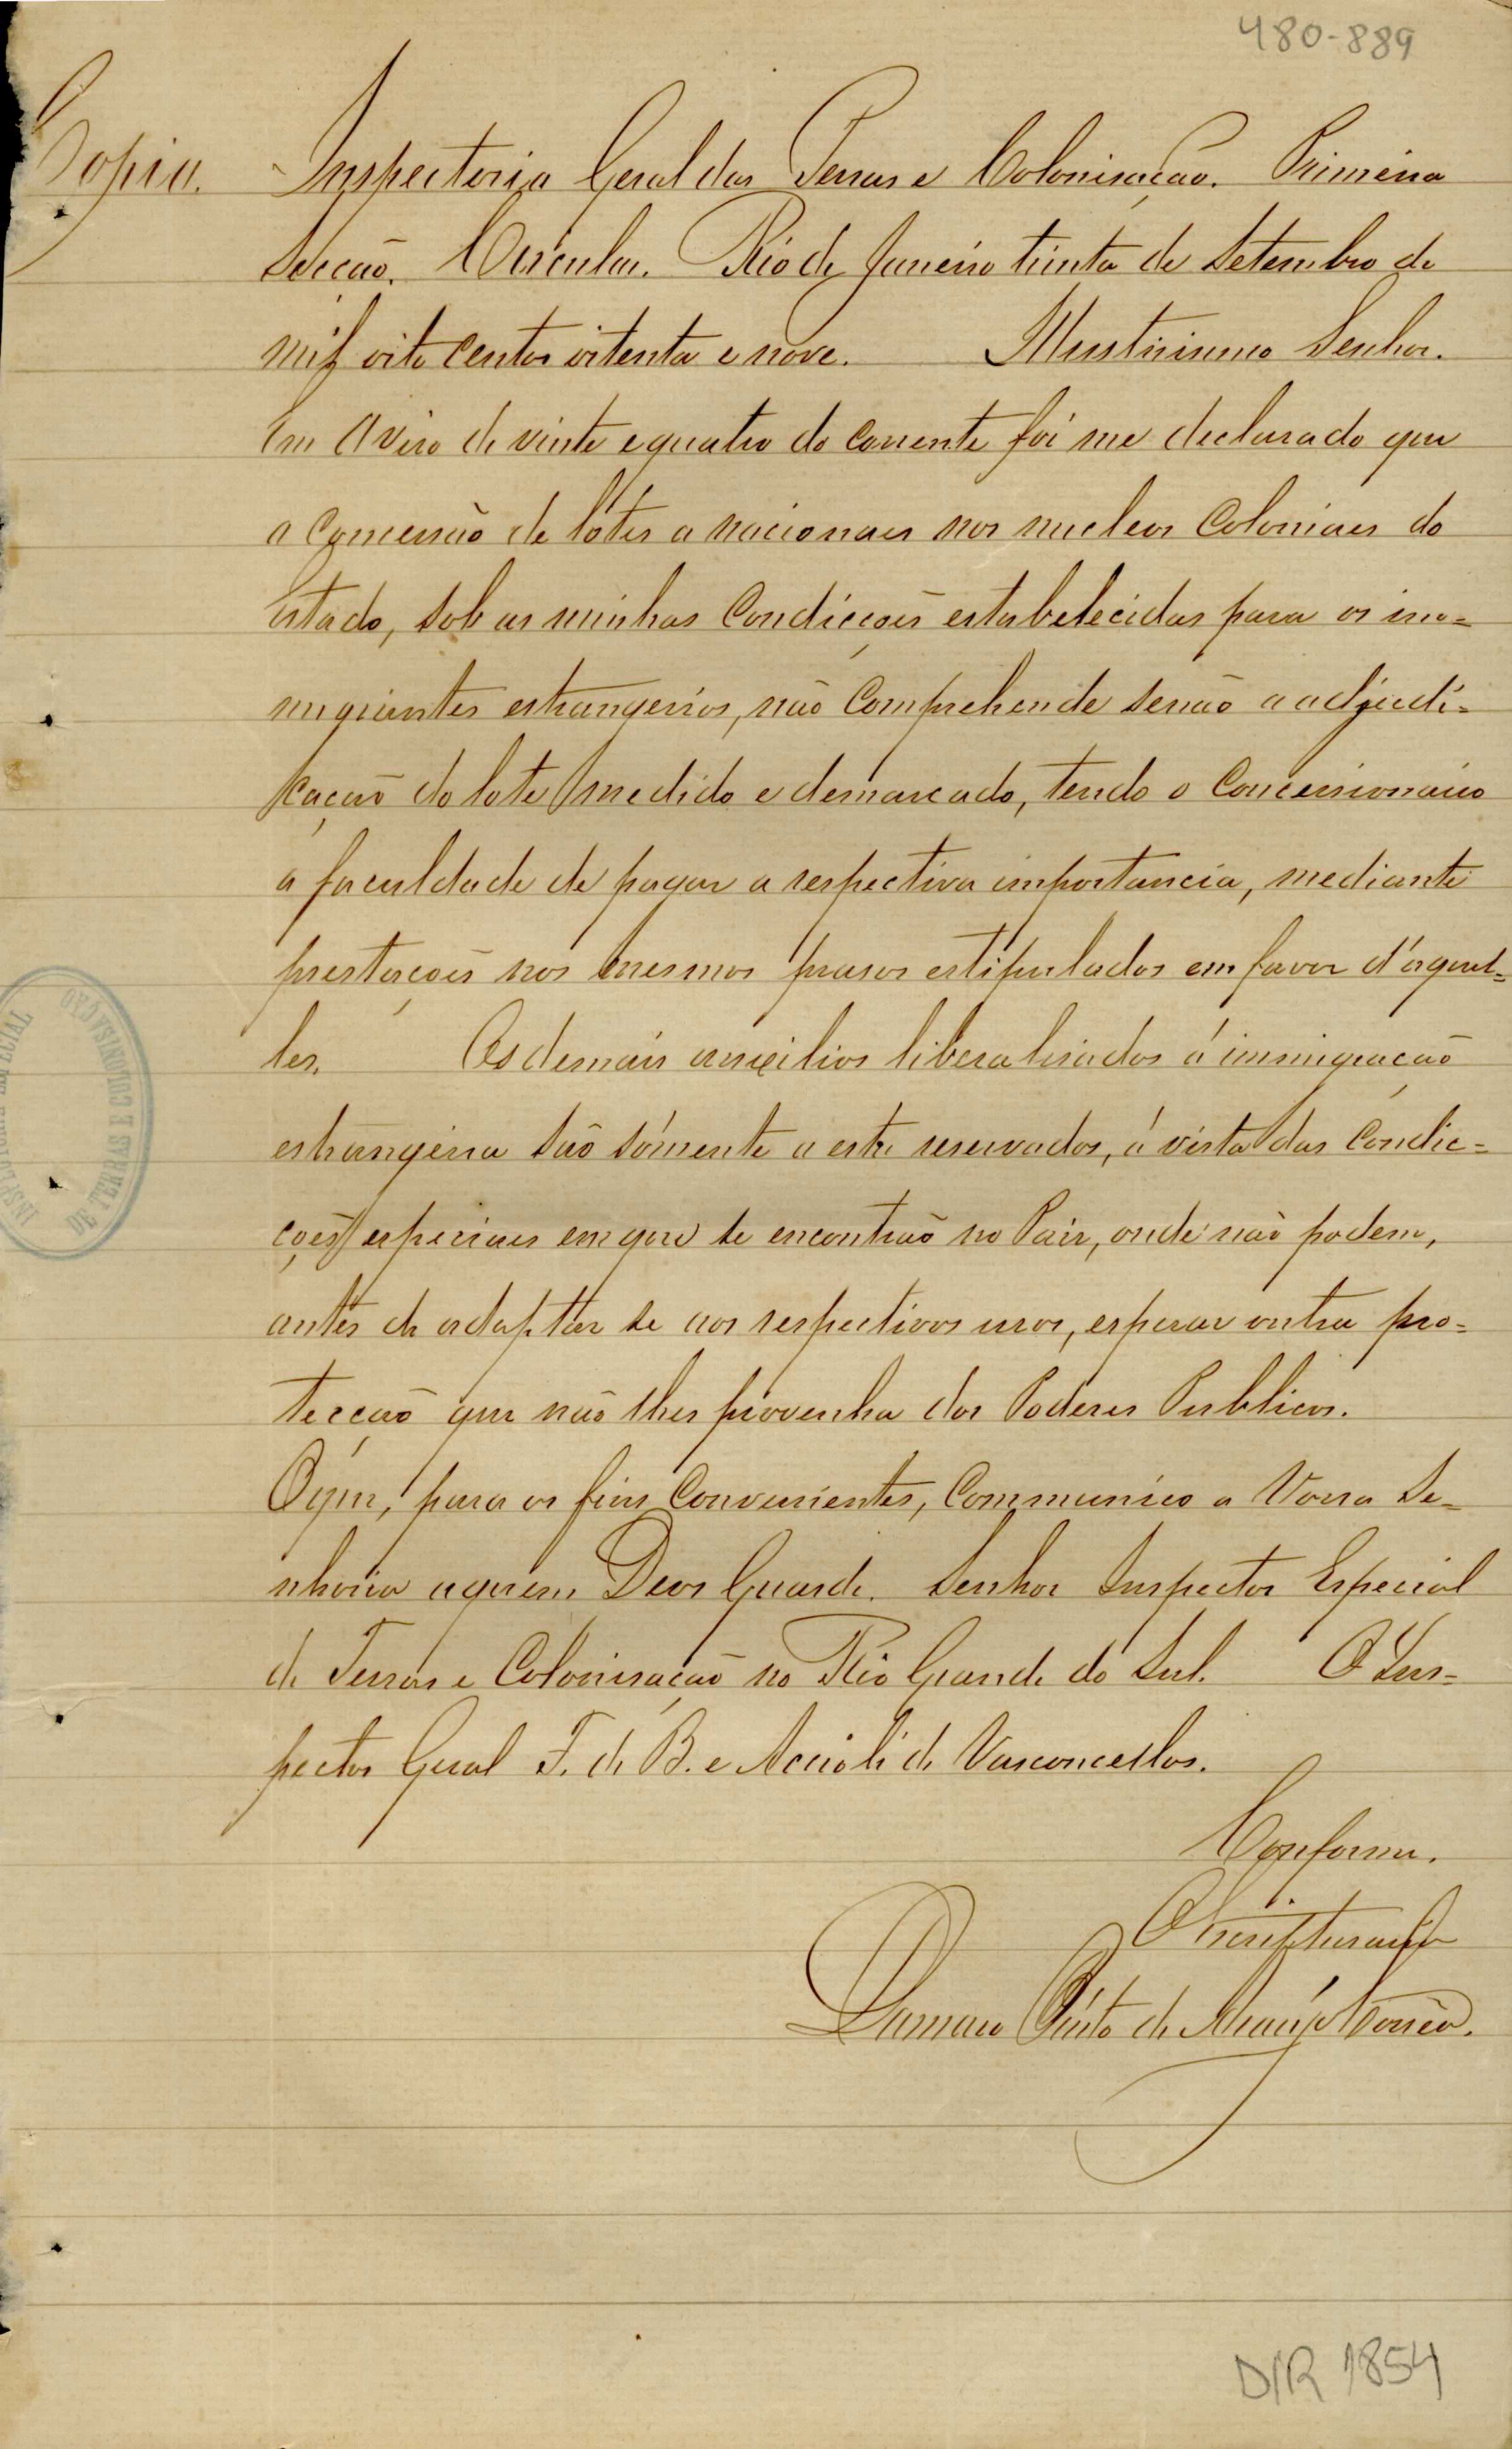 480-889
Copia. Inspectoria Geral das Terras e Colonisação. Primeira
Secção. Circular. Rio de Janeiro trinta de Setembro de
mil oito centos oitenta e nove. Illustrissimo Senhor.
Em Aviso de vinte e quatro do corrente foi me declarado que
a concessão de lótes a nacionaes nos nucleos Coloniaes do
Estado, sob as minhas Condicções estabelecidas para os im=
migrantes estrangeiros, não Comprehende senão a adjudi=
cação do lote medido e demarcado, tendo o Concessionario
a faculdade de pagar a respectiva importancia, mediante
prestações nos mesmos prasos estipulados em favor d'aquel=
les. Os demais auxilios liberalisados á immigração
estrangeira são sómente a esta reservados, á vista das Condic=
ções especiaes em que se encontrão no Paiz, onde não podem,
antes de adaptar se aos respectivos usos, esperar outra pro=
tecção que não lhes provenha dos Poderes Publicos.
O que, para os fins Convenientes, Communico a Vossa Se=
nhoria a quem Deos Guarde. Senhor Inspector Especial
de Terras e Colonisação no Rio Grande do Sul. O Ins=
pector Geral F. de B. e Accioli de Vasconcellos.
Conforme.
O Escripturario
Damaso Pinto de Araujo Corrêa.
INSPECTORIA ESPECIAL
DE TERRAS E COLONISAÇÃO
DIR 1854